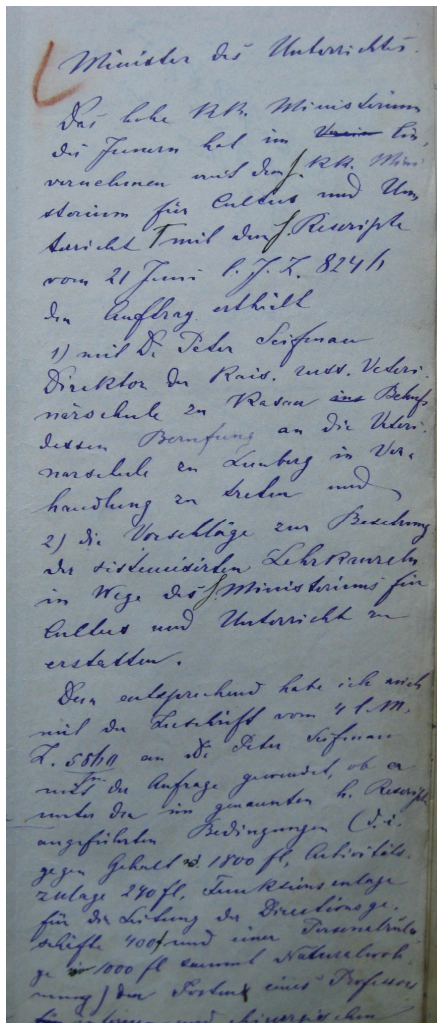 Minister des Unterrichtes.
Das hohe KK. Ministerium
des Innern hat im Ein-
vernehmen mit dem h. KK. Mini
sterium für Cultus und Un-
terricht mit dem h. Rescripte
vom 21 Juni l. J. Z. 824/h
den Auftrag ertheilt
1) mit Dr Peter Seifman
Direktor der Kais. russ. Veteri-
närschule zu Kasan ins Behufs
dessen Berufung an die Veteri-
narschule zu Lemberg in Ver-
handlung zu treten und
2) die Vorschläge zur Besetzung
der sistemisirten Lehrkanzeln
im Wege des h. Ministeriums für
Cultus und Unterricht zu
erstatten.
Dem entsprechend habe ich mich
mit der Zuschrift vom 4 l. M.
Z. an Dr Peter Seifman
mit der Anfrage gewendet, ob er
unter den im genannten h. Rescripte
angeführten Bedingungen (d. i.
gegen Gehalt 1800 fl, Activitäts-
zulage 240 fl, Funktionszulage
für die Leitung der Directionsge-
schäfte 400 f und einer Personalzula-
ge 1000 fl sammt Naturalwoh-
nung) den Posten eines Professors
für internen und chirurgischen